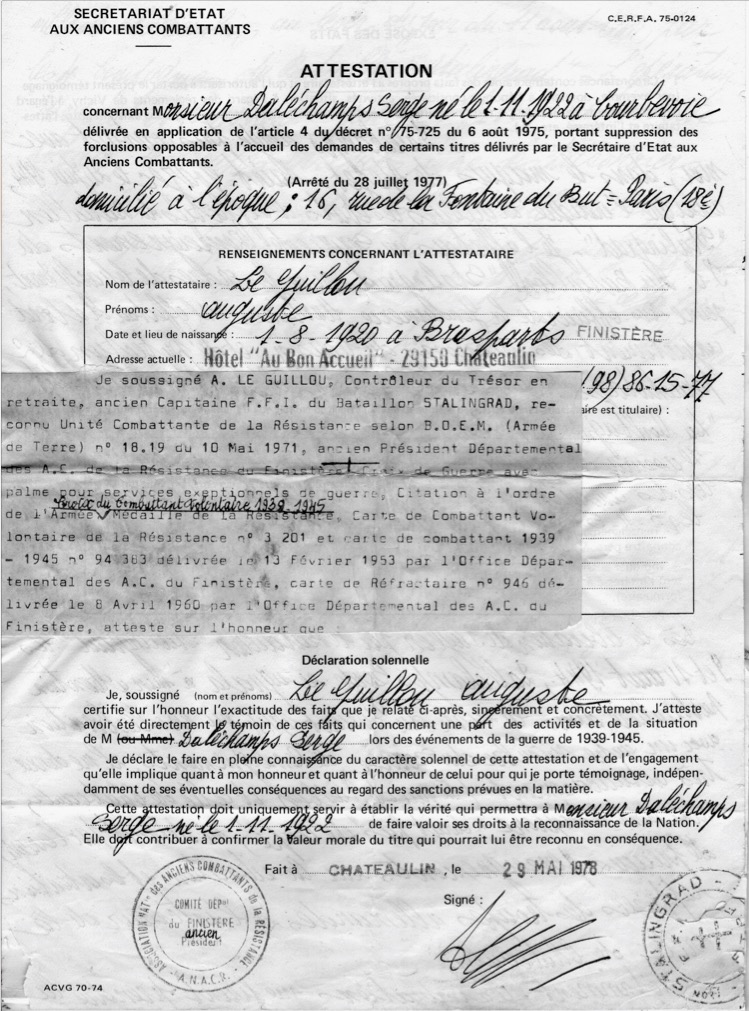 SECRETARIAT D'ETAT
AUX ANCIENS COMBATTANTS
C.E.R.F.A. 75-0124
ATTESTATION
concernant Monsieur Daléchamps Serge né le 1-11-1922 à Courbevoie
délivrée en application de l'article 4 du décret n° 75-725 du 6 août 1975, portant suppression des
forclusions opposables à l'accueil des demandes de certains titres délivrés par le Secrétaire d'Etat aux
Anciens Combattants.
(Arrêté du 28 juillet 1977)
domicilié à l'époque : 16, rue de la Fontaine du But = Paris (18è)
RENSEIGNEMENTS CONCERNANT L'ATTESTATAIRE
Nom de l'attestataire : Le Guillou
Prénoms : auguste
Date et lieu de naissance : 1-8-1920 à Brasparts FINISTÈRE
Adresse actuelle : Hôtel "Au Bon Accueil" - 29150 Châteaulin
(98) 86-15-77
aire est titulaire) :
Je soussigné A. LE GUILLOU, Contrôleur du Trésor en
retraite, ancien Capitaine F.F.I. du Bataillon STALINGRAD, re-
connu Unité Combattante de la Résistance selon B.O.E.M. (Armée
de Terre) n° 18.19 du 10 Mai 1971, ancien Président Départemental
des A.C. de la Résistance du Finistère, Croix de Guerre avec
palme pour services exeptionnels de guerre, Citation à l'ordre
Croix du Combattant Volontaire 1939-1945
de l'Armée, Médaille de la Résistance, Carte de Combattant Vo-
lontaire de la Résistance n° 3 201 et carte de combattant 1939
- 1945 n° 94 383 délivrée le 13 Février 1953 par l'Office Dépar-
temental des A.C. du Finistère, carte de Réfractaire n° 946 dé-
livrée le 8 Avril 1960 par l'Office Départemental des A.C. du
Finistère, atteste sur l'honneur que :
Déclaration solennelle
Je, soussigné (nom et prénoms) Le Guillou auguste
certifie sur l'honneur l'exactitude des faits que je relate ci-après, sincèrement et concrètement. J'atteste
avoir été directement le témoin de ces faits qui concernent une part des activités et de la situation
de M (ou Mme) Daléchamps Serge lors des événements de la guerre de 1939-1945.
Je déclare le faire en pleine connaissance du caractère solennel de cette attestation et de l'engagement
qu'elle implique quant à mon honneur et quant à l'honneur de celui pour qui je porte témoignage, indépen-
damment de ses éventuelles conséquences au regard des sanctions prévues en la matière.
Cette attestation doit uniquement servir à établir la vérité qui permettra à Monsieur Daléchamps
Serge né le 1-11-1922 de faire valoir ses droits à la reconnaissance de la Nation.
Elle doit contribuer à confirmer la valeur morale du titre qui pourrait lui être reconnu en conséquence.
Fait à CHATEAULIN, le 29 MAI 1978
Signé :
ASSOCIATION NAT. des ANCIENS COMBATTANTS de la RÉSISTANCE
COMITÉ DÉPal
du FINISTÈRE
ancien
Président
A.N.A.C.R.
STALINGRAD
ACVG 70-74